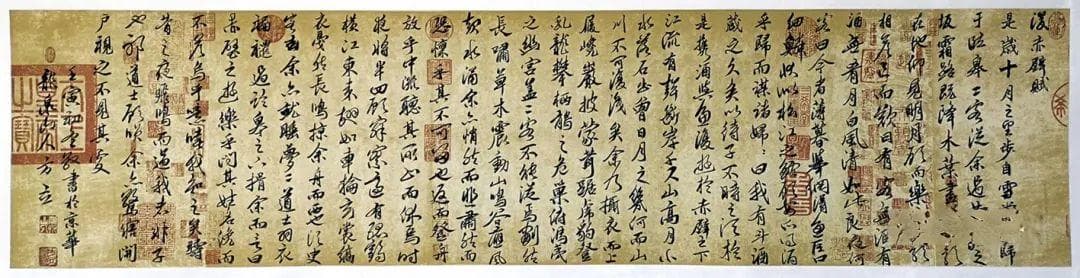 後赤壁賦
是歲十月之望步自雪堂將歸
于臨皋二客從余過黃泥之
坂霜露既降木葉盡脫人影
在地仰見明月顧而樂之行歌
相答已而歎曰有客無酒有
酒無肴月白風清如此良夜何
客曰今者薄暮舉網得魚巨口
細鱗狀似松江之鱸顧安所得酒
乎歸而謀諸婦婦曰我有斗酒
藏之久矣以待子不時之須於
是攜酒與魚復遊於赤壁之下
江流有聲斷岸千尺山高月小
水落石出曾日月之幾何而江山
不可復識矣余乃攝衣而上
履巉巖披蒙茸踞虎豹登
虬龍攀栖鶻之危巢俯馮夷
之幽宮蓋二客不能從焉劃然
長嘯草木震動山鳴谷應風
起水涌余亦悄然而悲肅然而
恐懍乎其不可留也返而登舟
放乎中流聽其所止而休焉時
夜將半四顧寂寥適有孤鶴
橫江東來翅如車輪玄裳縞
衣戛然長鳴掠余舟而西也須臾
客去余亦就睡夢一道士羽衣
蹁躚過臨皋之下揖余而言曰
赤壁之遊樂乎問其姓名俛而
不答嗚呼噫嘻我知之矣疇
昔之夜飛鳴而過我者非子
也邪道士顧笑余亦驚悟開
戶視之不見其處
壬寅初冬敬書於京華
方立